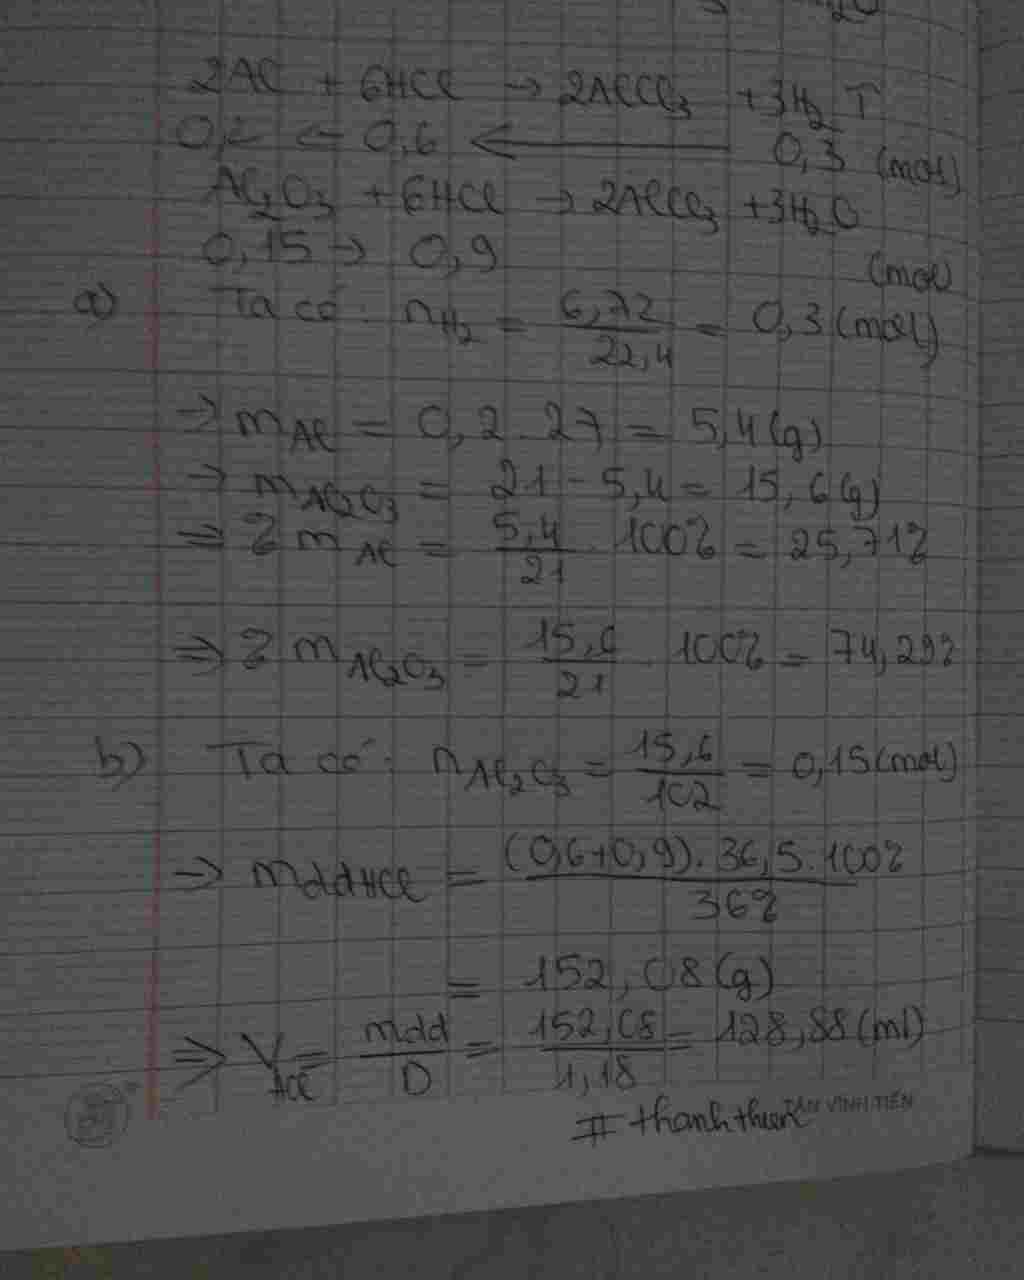 2Al + 6HCl → 2AlCl₃ + 3H₂ ↑
0,2 ← 0,6 ← 0,3 (mol)
Al₂O₃ + 6HCl → 2AlCl₃ + 3H₂O
0,15 → 0,9 (mol)
a) Ta có: nH₂ = 6,72/22,4 = 0,3 (mol)
→ mAl = 0,2 . 27 = 5,4 (g)
→ mAl₂O₃ = 21 - 5,4 = 15,6 (g)
⇒ % mAl = 5,4/21 . 100% = 25,71%
⇒ % mAl₂O₃ = 15,6/21 . 100% = 74,29%
b) Ta có: nAl₂O₃ = 15,6/102 = 0,15 (mol)
→ mddHCl = (0,6+0,9).36,5.100%/36%
= 152,08 (g)
⇒ V = mdd/D = 152,08/1,18 = 128,88 (ml)
TÂN VĨNH TIẾN